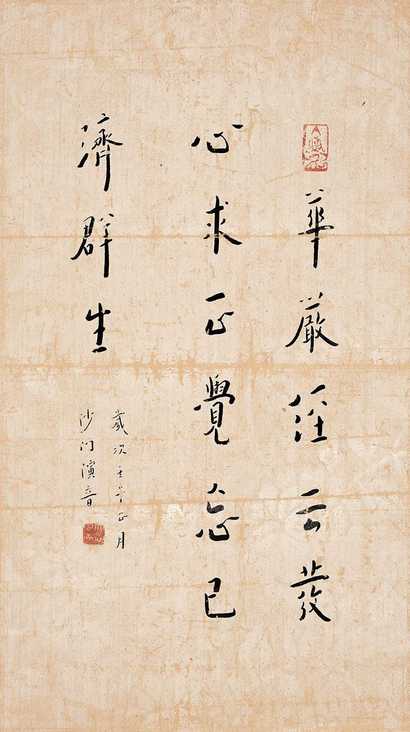 華嚴經云發
心求正覺忘已
濟群生
歲次壬午正月
沙门演音